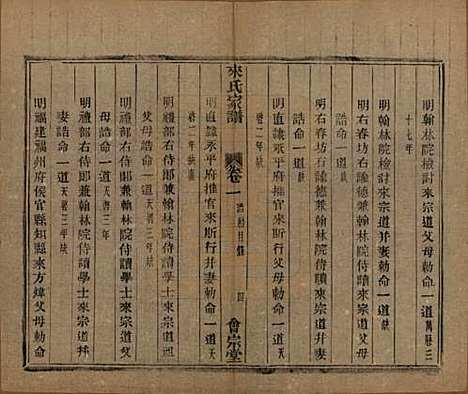 明翰林院檢討來宗道父母勅命一道萬曆三
十七年
明翰林院檢討來宗道并妻勅命一道缺
明右春坊右諭德兼翰林院侍讀來宗道并妻
誥命一道缺
明直隸永平府推官來斯行并妻勅命一道天
啓二年缺
來氏家譜
卷一
誥勅目錄
四
會宗堂
明直隸永平府推官來斯行并妻勅命一道天
啓二年缺
明禮部右侍郎兼翰林院侍讀學士來宗道祖
父母誥命一道天啓三年缺
明禮部右侍郎兼翰林院侍讀學士來宗道父
母誥命一道天啓三年
明禮部右侍郎兼翰林院侍讀學士來宗道并
妻誥命一道天啓三年缺
明福建福州府侯官縣知縣來方煒父母勅命